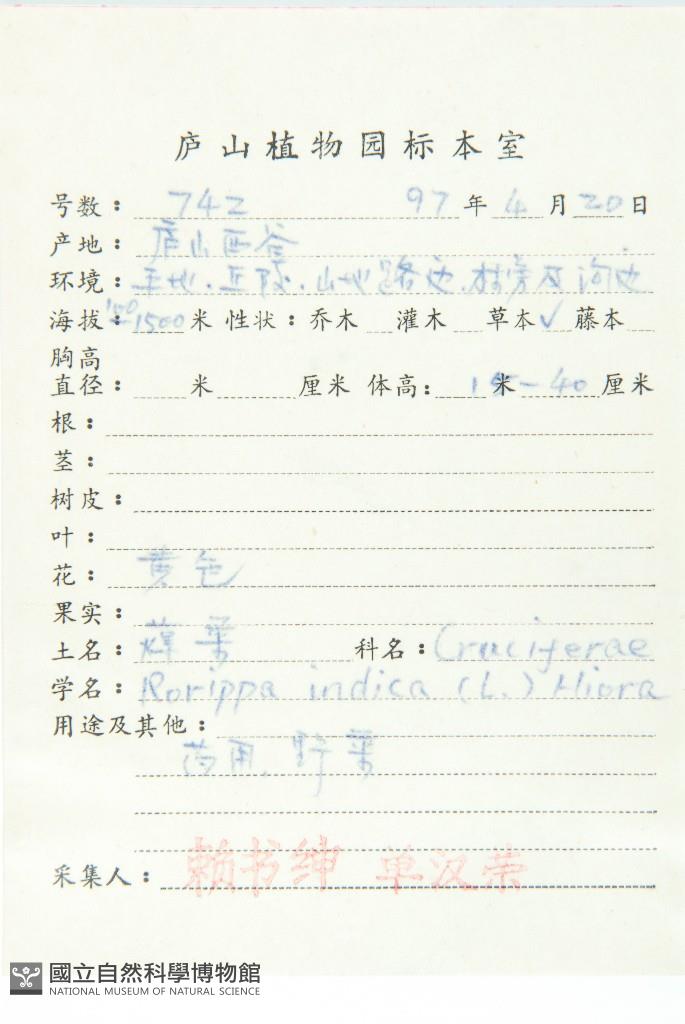 庐山植物园标本室
号数：742 97年4月20日
产地：庐山西谷
环境：平地.丘陵.山地路边.村旁及沟边
海拔：150-1500米 性状：乔木 灌木 草本✓ 藤本
胸高
直径： 米 厘米 体高： 15米-40厘米
根：
茎：
树皮：
叶：
花：黄色
果实：
土名：蔊菜 科名：Cruciferae
学名：Rorippa indica (L.) Hiora
用途及其他：
药用.野菜
采集人：赖书绅 单汉荣
國立自然科學博物館
NATIONAL MUSEUM OF NATURAL SCIENCE